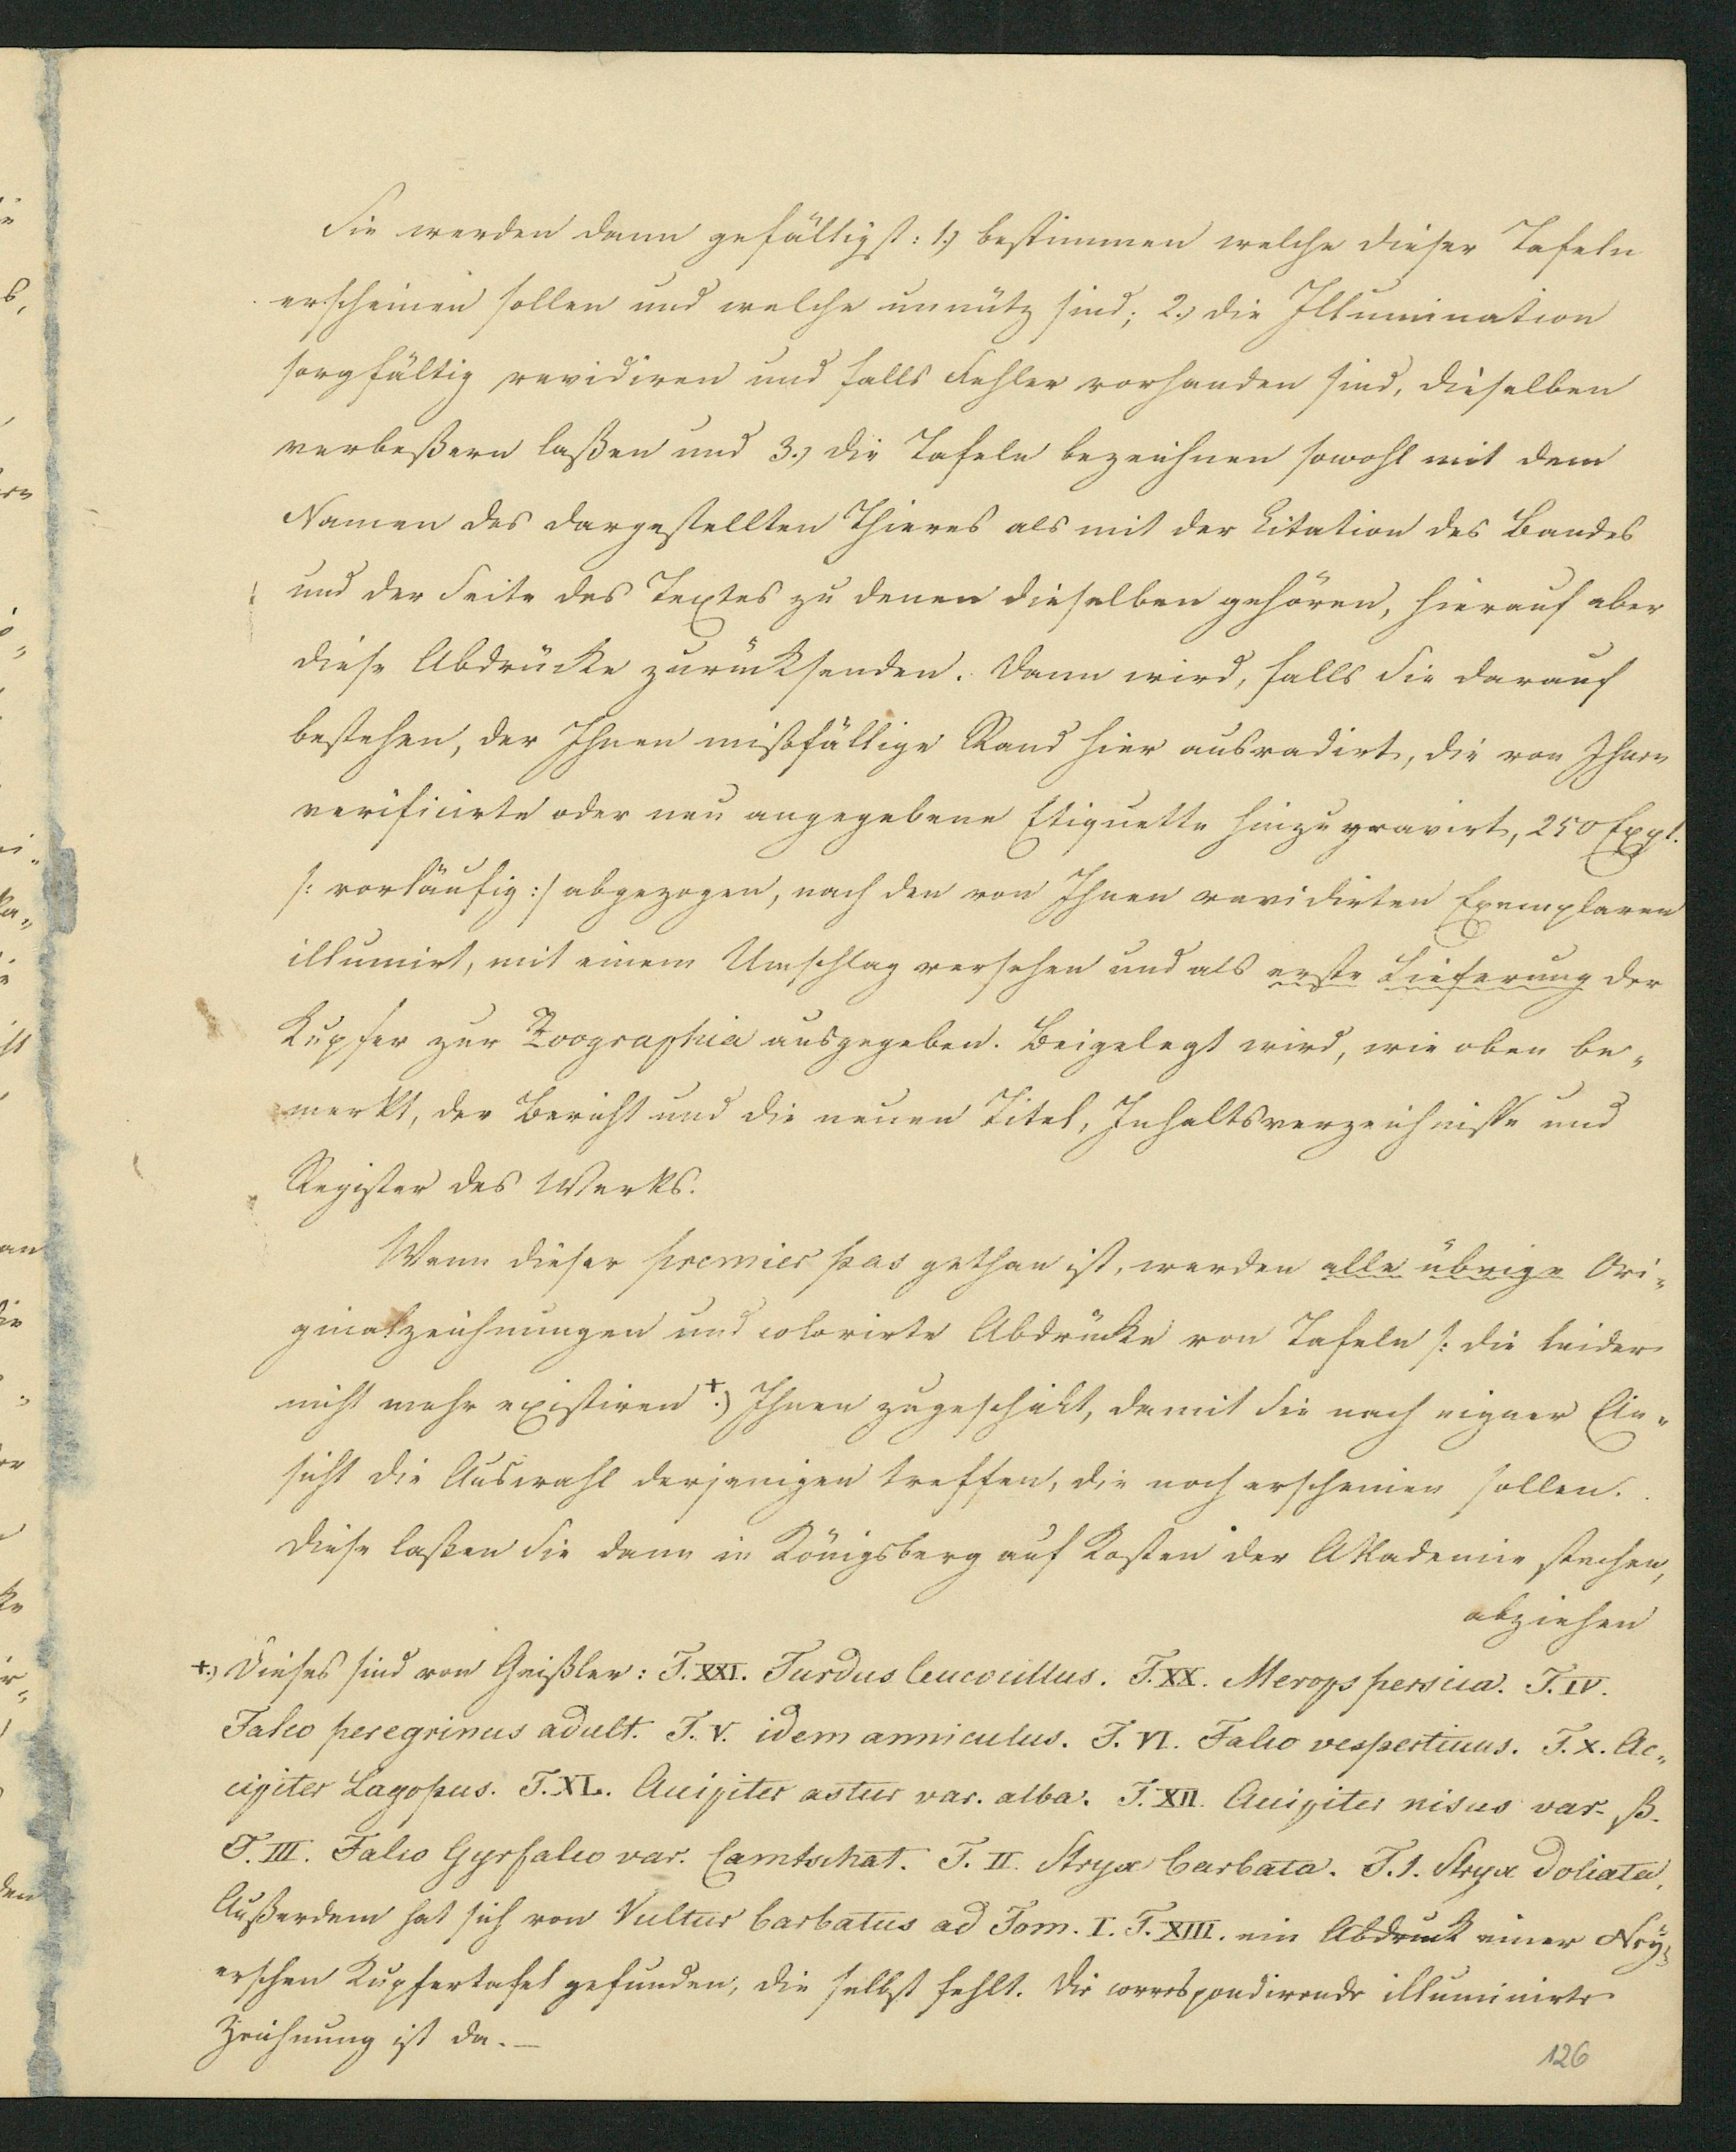 Sie werden dann gefälligst: 1.) bestimmen welche dieser Tafeln
erscheinen sollen und welche unnütz sind; 2.) die Illumination
sorgfältig revidiren und falls Fehler vorhanden sind, dieselben
verbeßern laßen und 3.) die Tafeln bezeichnen sowohl mit dem
Namen des dargestellten Thieres als mit der Citation des Bandes
und der Seite des Textes zu denen dieselben gehören, hierauf aber
diese Abdrücke zurücksenden. Dann wird, falls Sie darauf
bestehen, der Ihnen mißfällige Rand hier ausradirt, die von Ihnen
verificirte oder neu angegebene Etiquette hinzugravirt, 250 Expl.
/: vorläufig :/ abgezogen, nach den von Ihnen revidirten Exemplaren
illumirt, mit einem Umschlag versehen und als erste Lieferung der
Kupfer zur Zoographia ausgegeben. Beigelegt wird, wie oben be-
merkt, der Bericht und die neuen Titel, Inhaltsverzeichnisse und
Register des Werks.
Wenn dieser premier pas gethan ist, werden alle übrige Ori-
ginalzeichnungen und colorirte Abdrücke von Tafeln /: die leider
nicht mehr existiren +.) Ihnen zugeschickt, damit Sie nach eigner Ein-
sicht die Auswahl derjenigen treffen, die noch erscheinen sollen.
Diese laßen Sie dann in Königsberg auf Kosten der Akademie stechen,
abziehen
+.) Dieses sind von Geißler: T. XXI. Turdus leucocillus. T. XX. Merops persica. T. IV.
Falco peregrinus adult. T. V. idem anniculus. T. VI. Falco vespertinus. T. X. Ac-
cipiter Lagopus. T. XL. Accipiter astur var. alba. T. XII. Accipiter nisus var. β.
T. III. Falco Gyrfalco var. Camtschat. T. II. Stryx barbata. T. 1. Stryx doliata.
Außerdem hat sich von Vultur barbatus ad Tom. I. T. XIII. ein Abdruck einer
erschen Kupfertafel gefunden, die selbst fehlt. Die correspondirende illuminirte
Zeichnung ist da. —
126